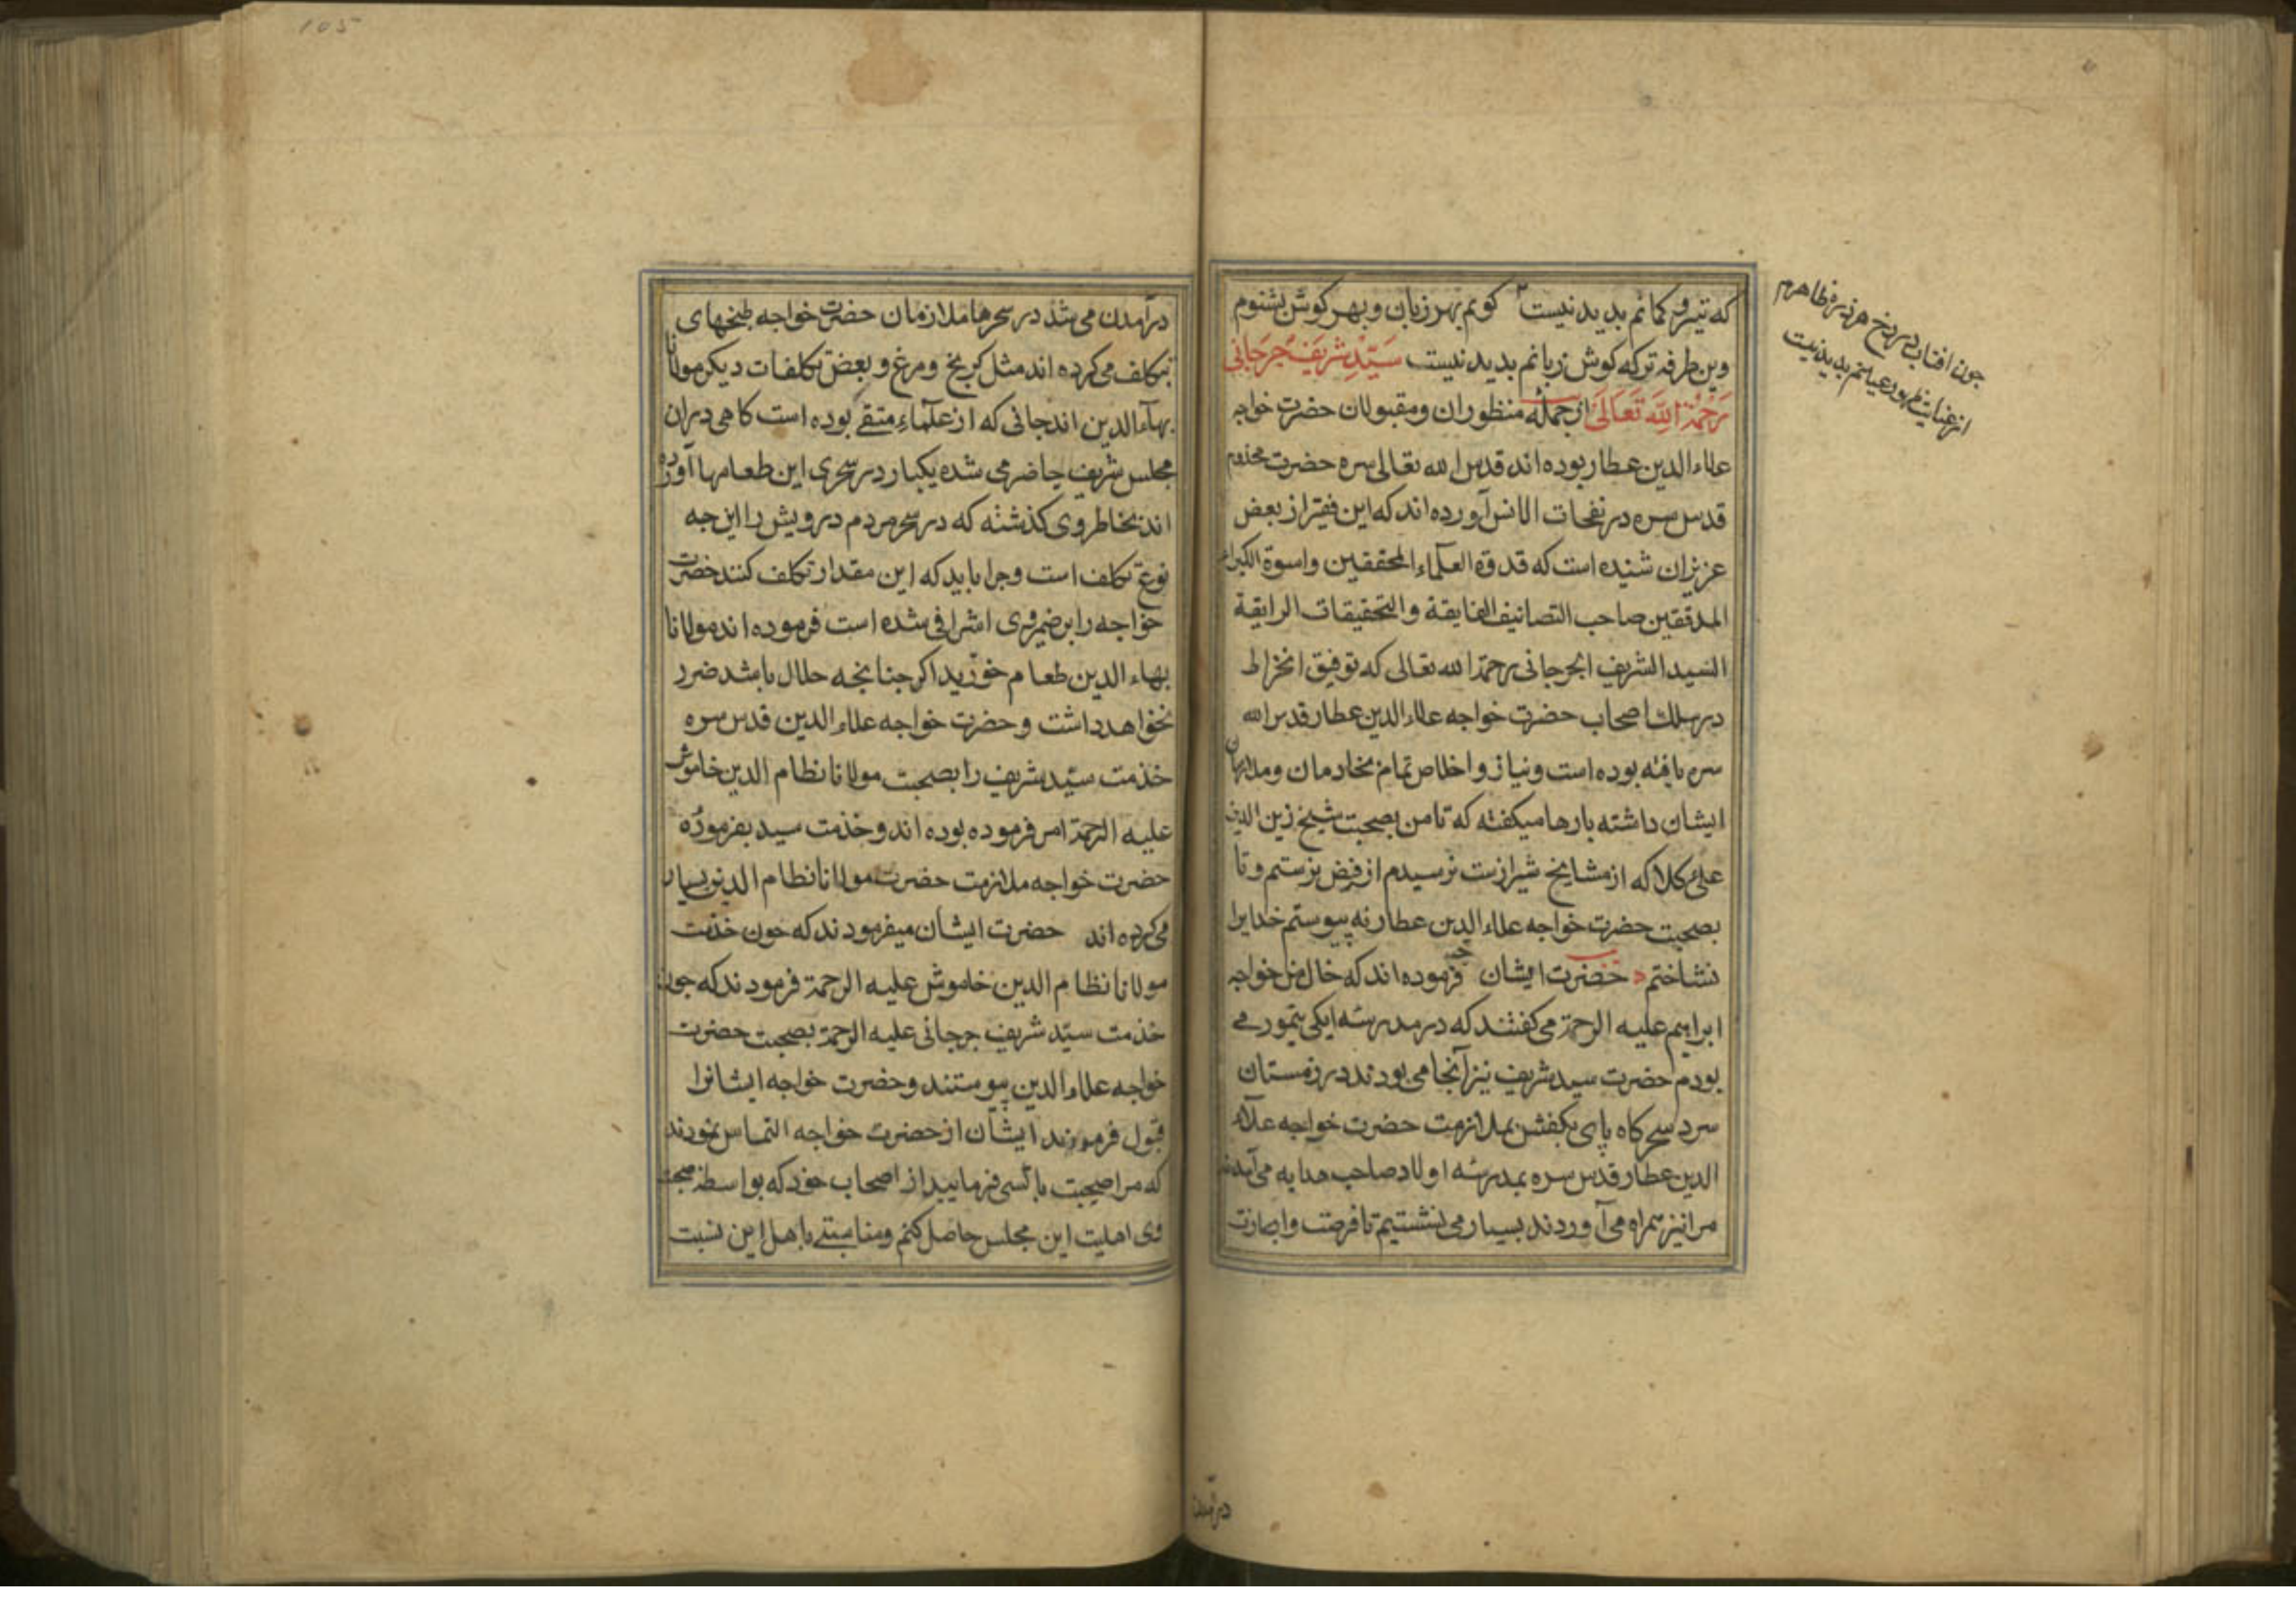 که تیر و کمانم بدید نیست کویم بهر زبان و بهر کوش بشنوم
وین طرفه ترکه کوش زبانم بدید نیست سَیّدِ شریف جُرجَانی
رَحْمَةُ اللَّه تَعَالَی از جمله منظوران و مقبولان حضرت خواجه
علاء الدین عطار بوده اند قدس الله تعالی سره حضرت مخدوم
قدس سره در نفحات الانس آورده اند که این فقیر از بعض
عزیزان شنیده است که قدوة العلماء المحققین واسوة الکبراء
المدققین صاحب التصانیف الفایقة والتحقیقات الرایقة
السید الشریف الجرجانی رحمة الله تعالی که توفیق انخراط
در سلک اصحاب حضرت خواجه علاء الدین عطار قدس الله
سره یافته بوده است و نیاز و اخلاص تمام بخادمان و ملازمان
ایشان داشته بارها میکفته که تا من بصحبت شیخ زین الدین
علی کلا که از مشایخ شیرازست نرسیدم از رفض نرستم و تا
بصحبت حضرت خواجه علاء الدین عطار نه پیوستم خدایرا
نشناختم حضرت ایشان فرموده اند که خال من خواجه
ابراهیم علیه الرحمة می کفتند که در مدرسه ایکی تیمور می
بودم حضرت سید شریف نیز آنجا می بودند در زمستان
سرد سحرکاه پای بکفش بملازمت حضرت خواجه علاء
الدین عطار قدس سره بمدرسه اولاد صاحب هدایه می آمدند
مرا نیز همراه می آوردند بسیار می نشستیم تا فرصت و اجازت
جون افتاب در رخ هر ذره ظاهرم
از غایت ظهور عیانم بدید نیست
درآمدن
105
درآمدن می شد در سحرها ملازمان حضرت خواجه طبخهای
بتکلف می کرده اند مثل کرنج و مرغ و بعض تکلفات دیکر مولانا
بهآء الدین اندجانی که از علمآء متقی بوده است کاهی دران
مجلس شریف حاضر می شده یکبار در سحری این طعامها آورده
اند بخاطر وی کذشته که در سحر مردم درویش را این جه
نوع تکلف است و جرا باید که این مقدار تکلف کنند حضرت
خواجه را بر ضمیر وی اشرافی شده است فرموده اند مولانا
بهاء الدین طعام خورید اکر جنانجه حلال باشد ضرر
نخواهد داشت و حضرت خواجه علاء الدین قدس سره
خذمت سیّد شریف را بصحبت مولانا نظام الدین خاموش
علیه الرحمة امر فرموده بوده اند و خذمت سید بفرمودهٔ
حضرت خواجه ملازمت حضرت مولانا نظام الدین بسیار
می کرده اند حضرت ایشان میفرمودند که جون خذمت
مولانا نظام الدین خاموش علیه الرحمة فرمودند که جون
خذمت سیّد شریف جرجانی علیه الرحمة بصحبت حضرت
خواجه علاء الدین پیوستند و حضرت خواجه ایشانرا
قبول فرمودند ایشان از حضرت خواجه التماس نمودند
که مرا صحبت با کسی فرمایید از اصحاب خود که بواسطه صحبت
وی اهلیت این مجلس حاصل کنم و مناسبتی با اهل این نسبت